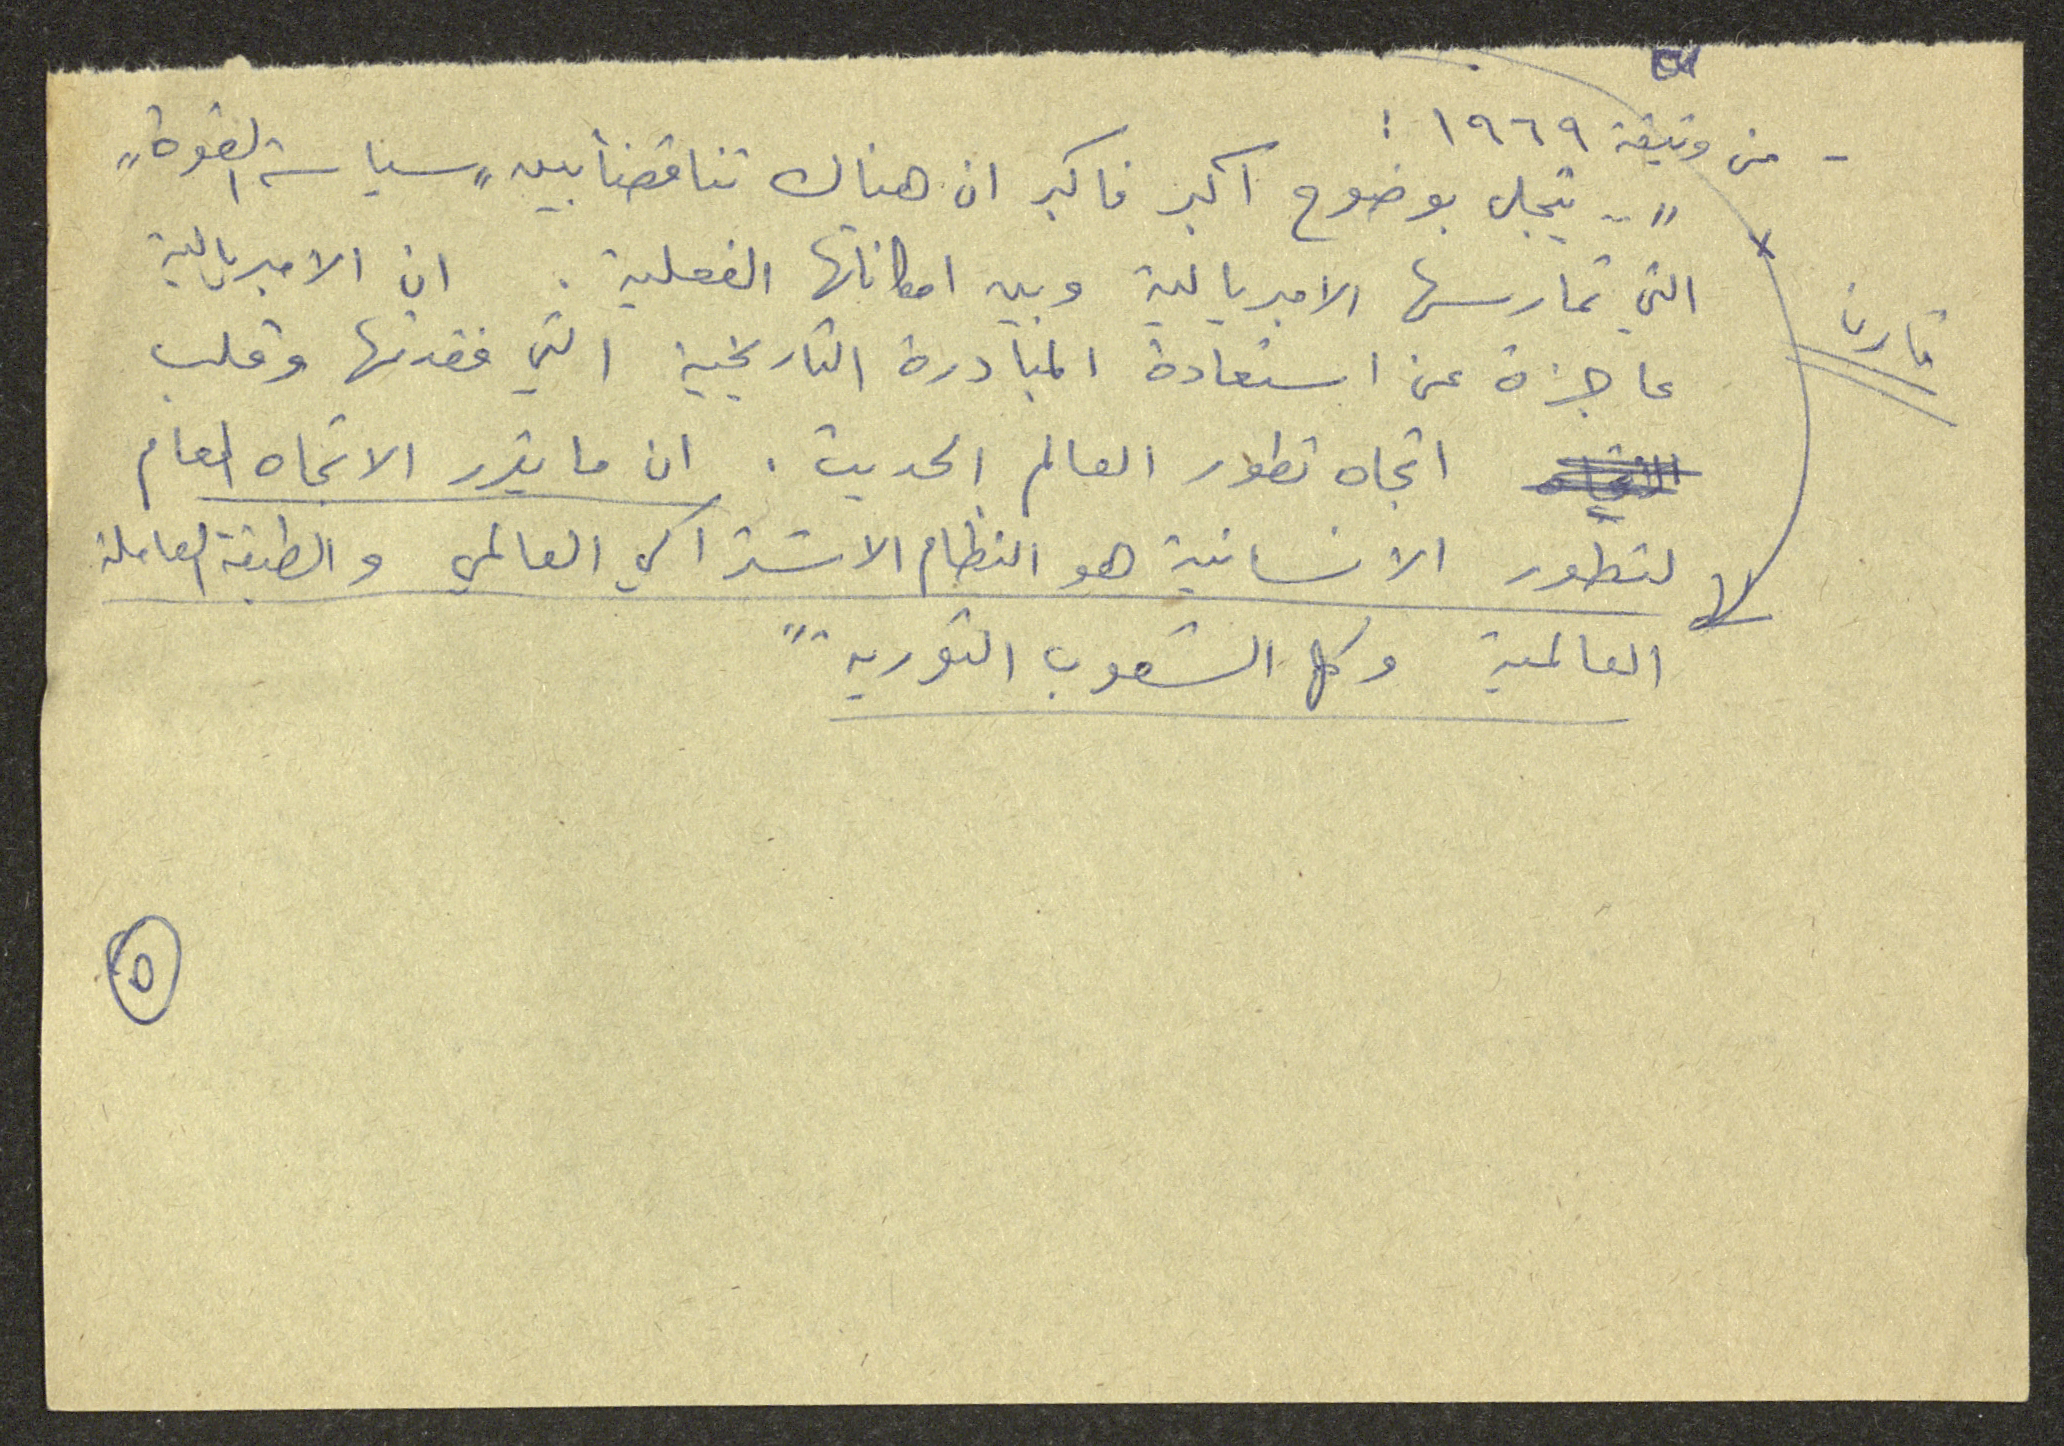 - من وثيقة ١٩٦٩ :
" .. يتجلى بوضوح اكبر فاكبر ان هناك تناقضاً بين "سياسة القوة"
التي تمارسها الامبريالية وبين امكاناتها الفعلية . ان الامبريالية
عاجزة عن استعادة المبادرة التاريخية التي فقدتها وقلب
الاتجاه اتجاه تطور العالم الحديث . ان ما يقرر الاتجاه العام
لتطور الانسانية هو النظام الاشتراكي العالمي والطبقة العاملة
العالمية وكل الشعوب الثورية "
قارن
٥